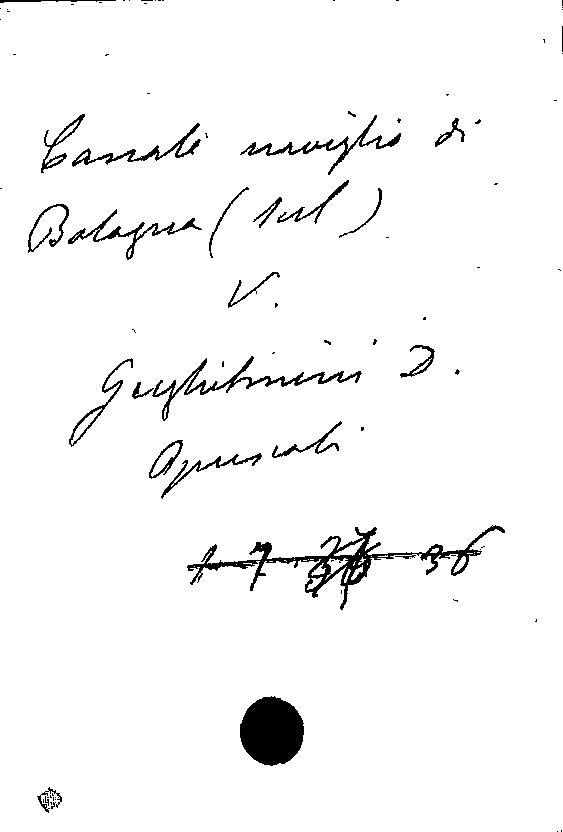 Canale naviglio di
Bologna (sul)
V.
Guglielmini D.
Opuscoli
1 7 36